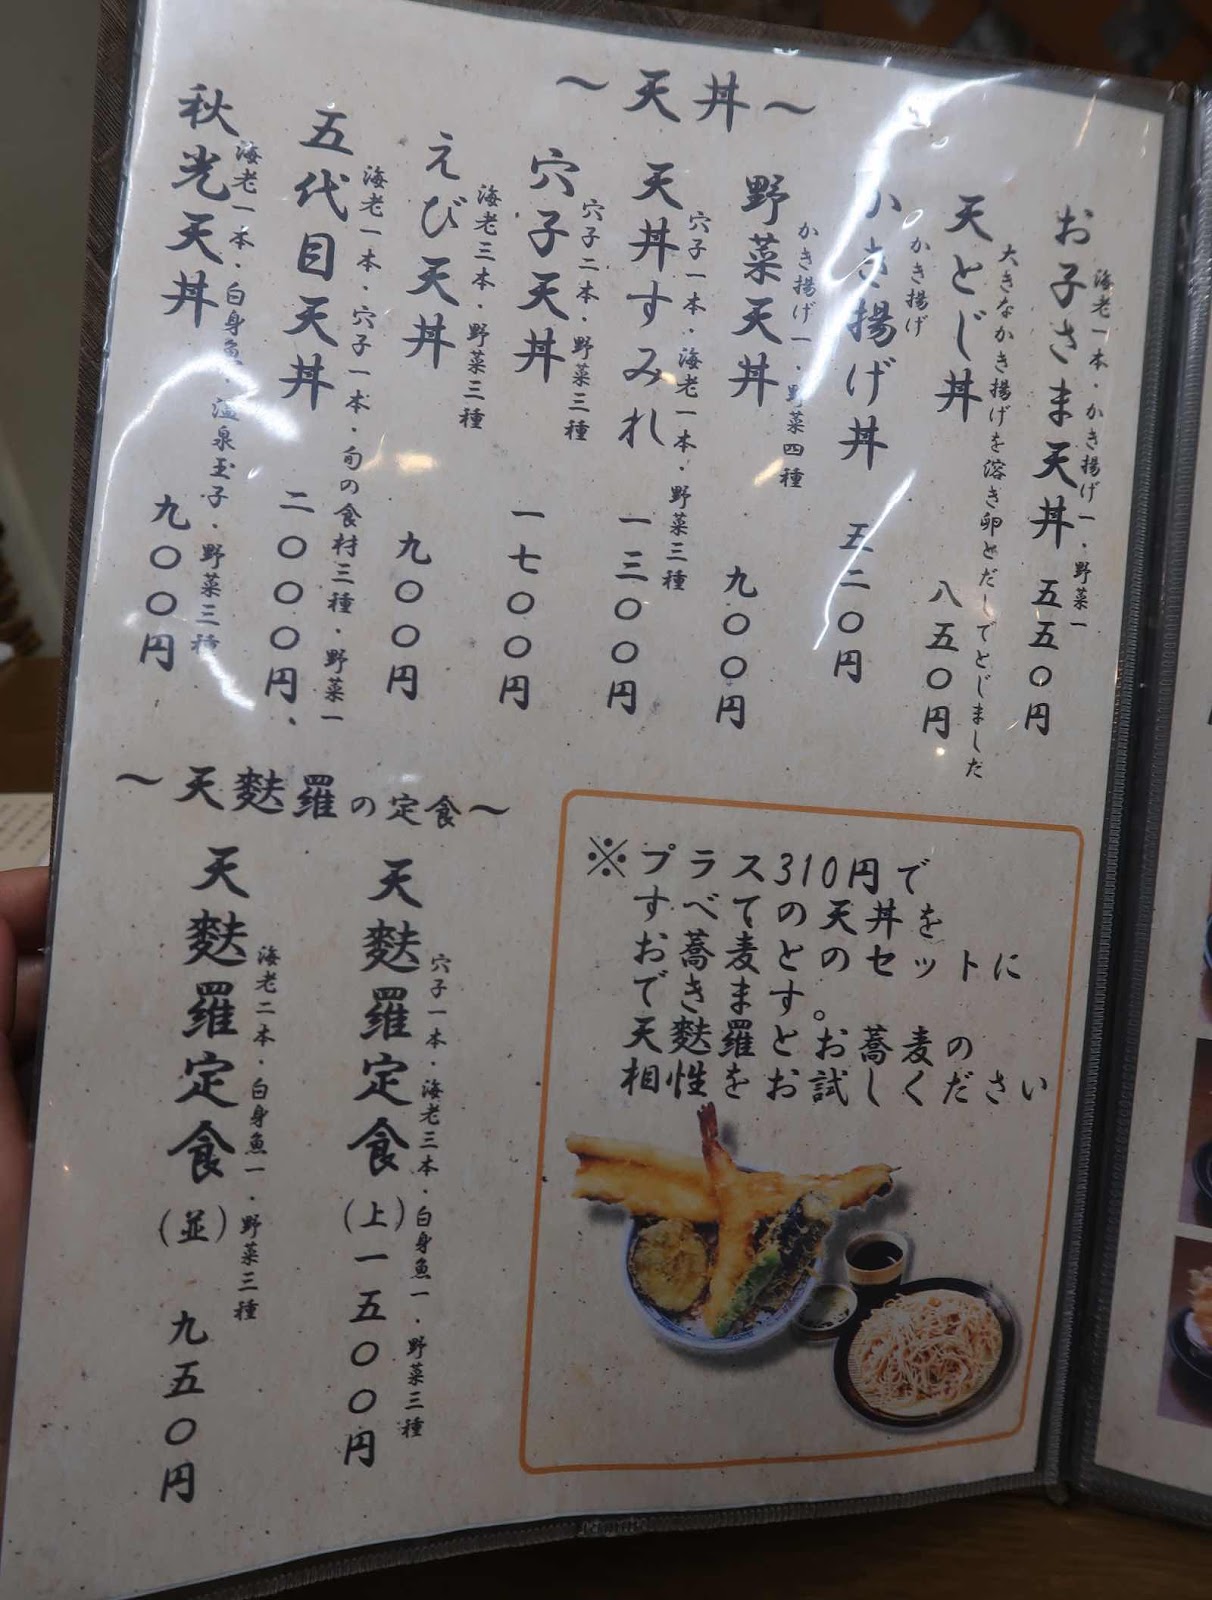 ～天丼～
お子さま天丼 五五〇円
海老一本・かき揚げ一・野菜一
天とじ丼 八五〇円
大きなかき揚げを溶き卵とだしでとじました
かき揚げ丼 五二〇円
かき揚げ
野菜天丼 九〇〇円
かき揚げ一・野菜四種
天丼すみれ 一三〇〇円
穴子一本・海老一本・野菜三種
穴子天丼 一七〇〇円
穴子二本・野菜三種
えび天丼 九〇〇円
海老三本・野菜三種
五代目天丼 二〇〇〇円、
海老一本・穴子一本・旬の食材三種・野菜一
秋光天丼 九〇〇円
海老一本・白身魚・温泉玉子・野菜三種
※プラス310円で
すべての天丼を
お蕎麦とのセットに
できます。
天麩羅とお蕎麦の
相性をお試しください
～天麩羅の定食～
天麩羅定食(上)一五〇〇円
穴子一本・海老三本・白身魚一・野菜三種
天麩羅定食(並) 九五〇円
海老二本・白身魚一・野菜三種